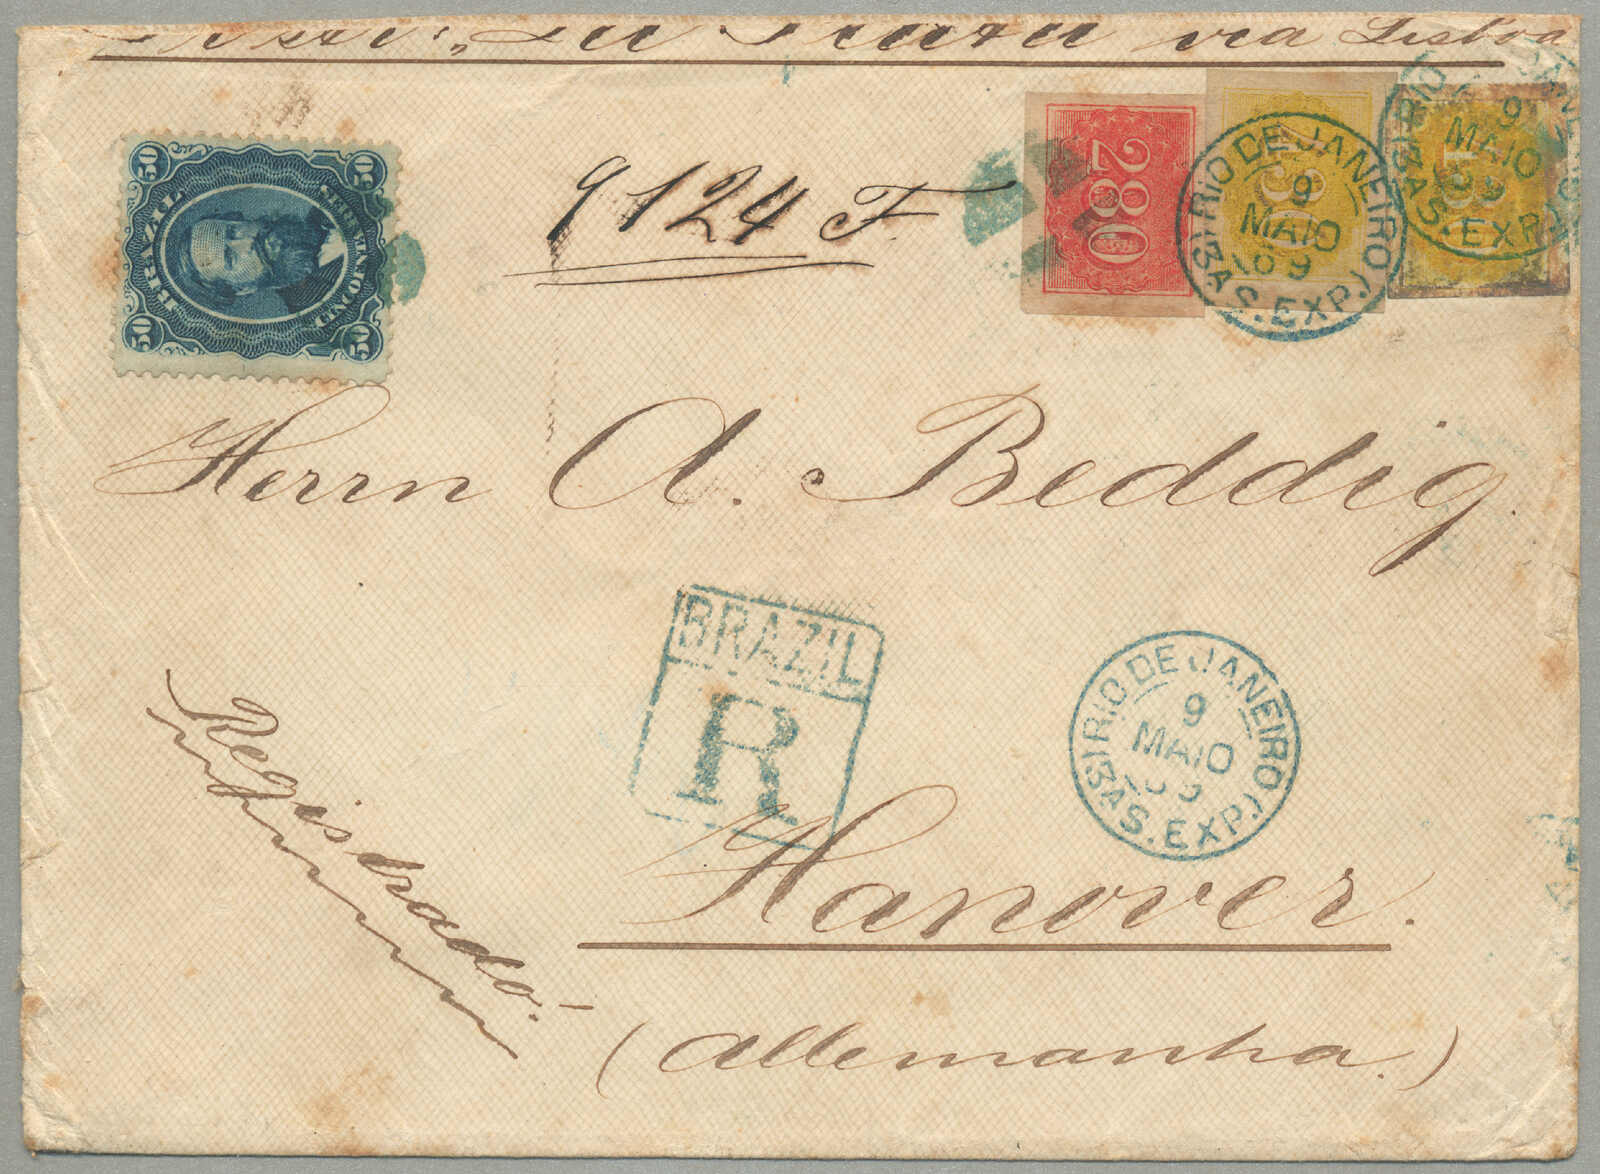 La Plata via Lisboa
50 50
BRAZIL
SETENTA
50 50
9124 F
280
430
RIO DE JANEIRO
9
MAIO
69
(3A S. EXP.)
430
RIO DE JANEIRO
9
MAIO
(3A S. EXP.)
Herrn A. Beddig.
BRAZIL
R
RIO DE JANEIRO
9
MAIO
(3A S. EXP.)
Registrado.
Hanover.
(Allemanha.)